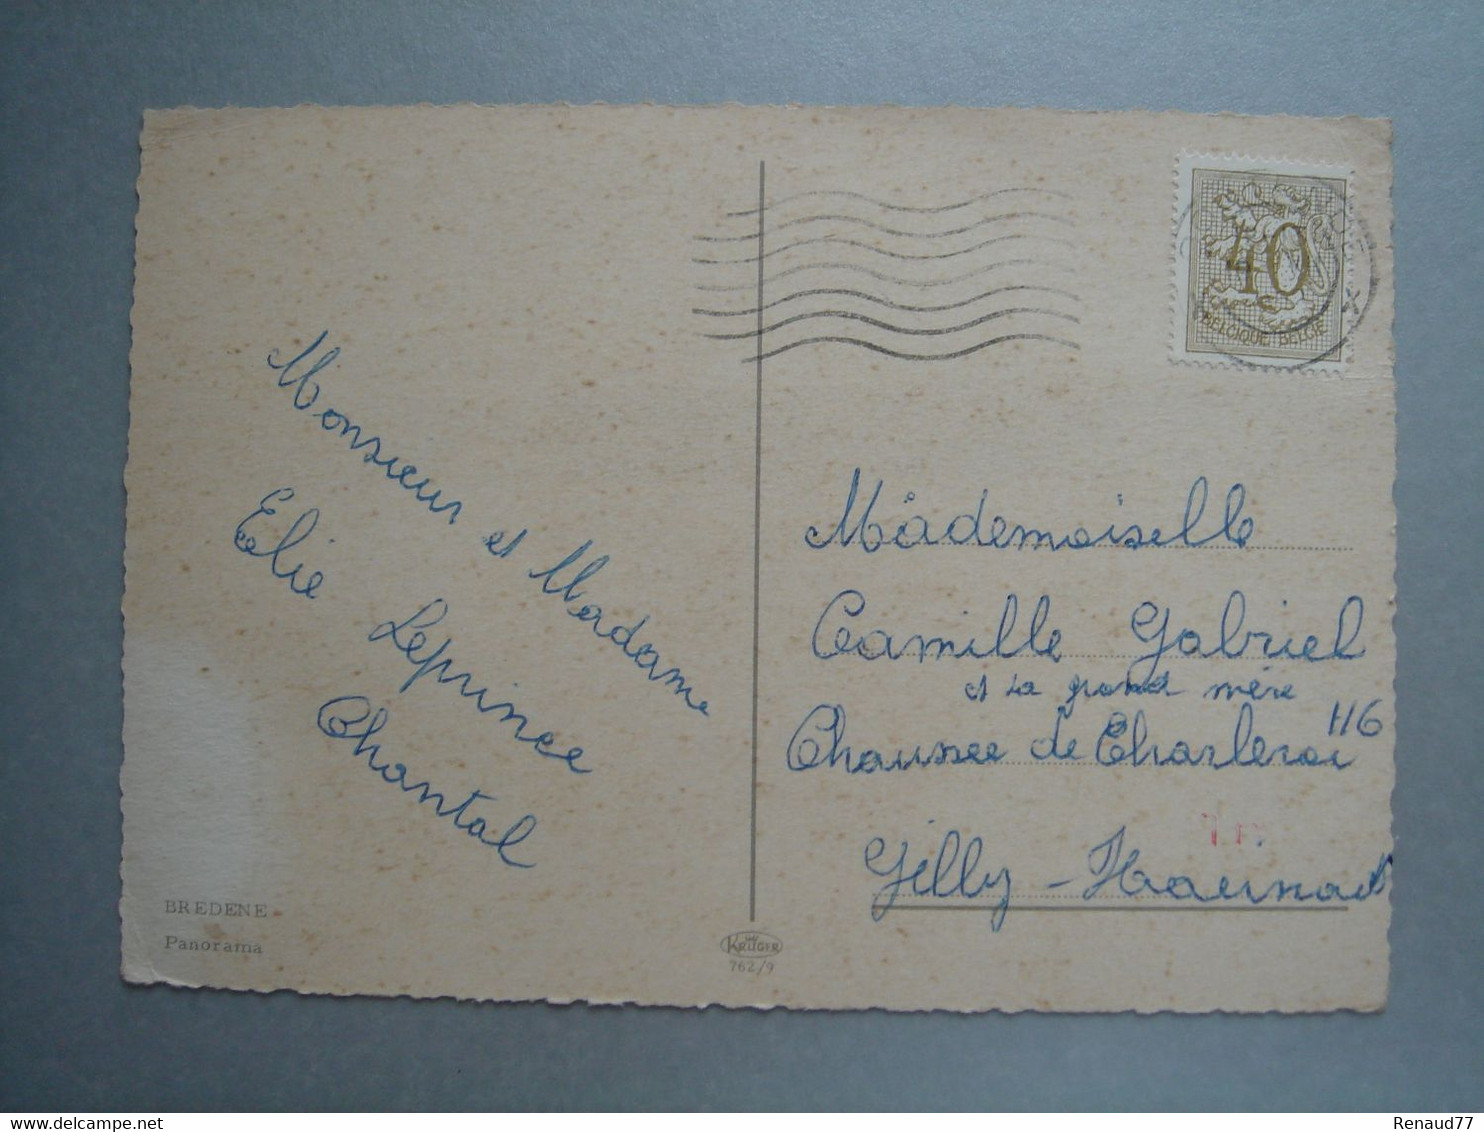 Monsieur et Madame
Elie Leprince
Chantal
BREDENE
Panorama
KRÜGER
762/9
40
BELGIQUE BELGIE
X
Mademoiselle
Camille Gabriel
et la grand mère
116
Chaussee de Charleroi
Gilly - Hainaut
www.delcampe.net
Renaud77